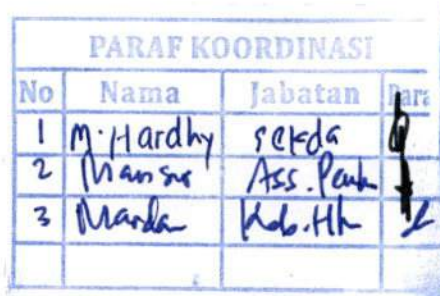 PARAF KOORDINASI
No Nama Jabatan Para
1 M. Hardhy sekda
2 Mansur Ass. Pem
3 Mardan Kab. Hk